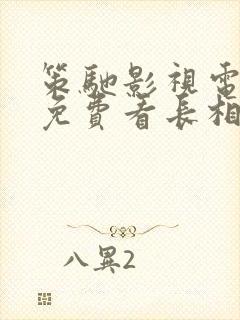 策馳影視電
免費看長相
八異2